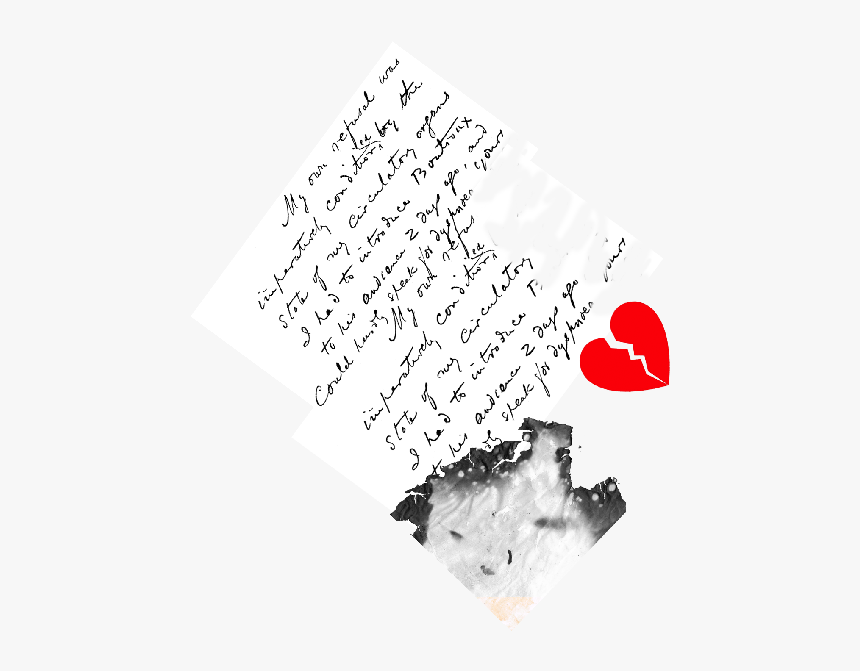 My own refusal was
imperatively conditioned by the
state of my circulatory organs
I had to introduce Boutroux
to his audience 2 days ago, and
Could hardly speak for dyspnoea yours
My own refus
imperatively conditions
state of my circulatory
I had to introduce B
to his audience 2 days ago
speak for dyspnoea yours